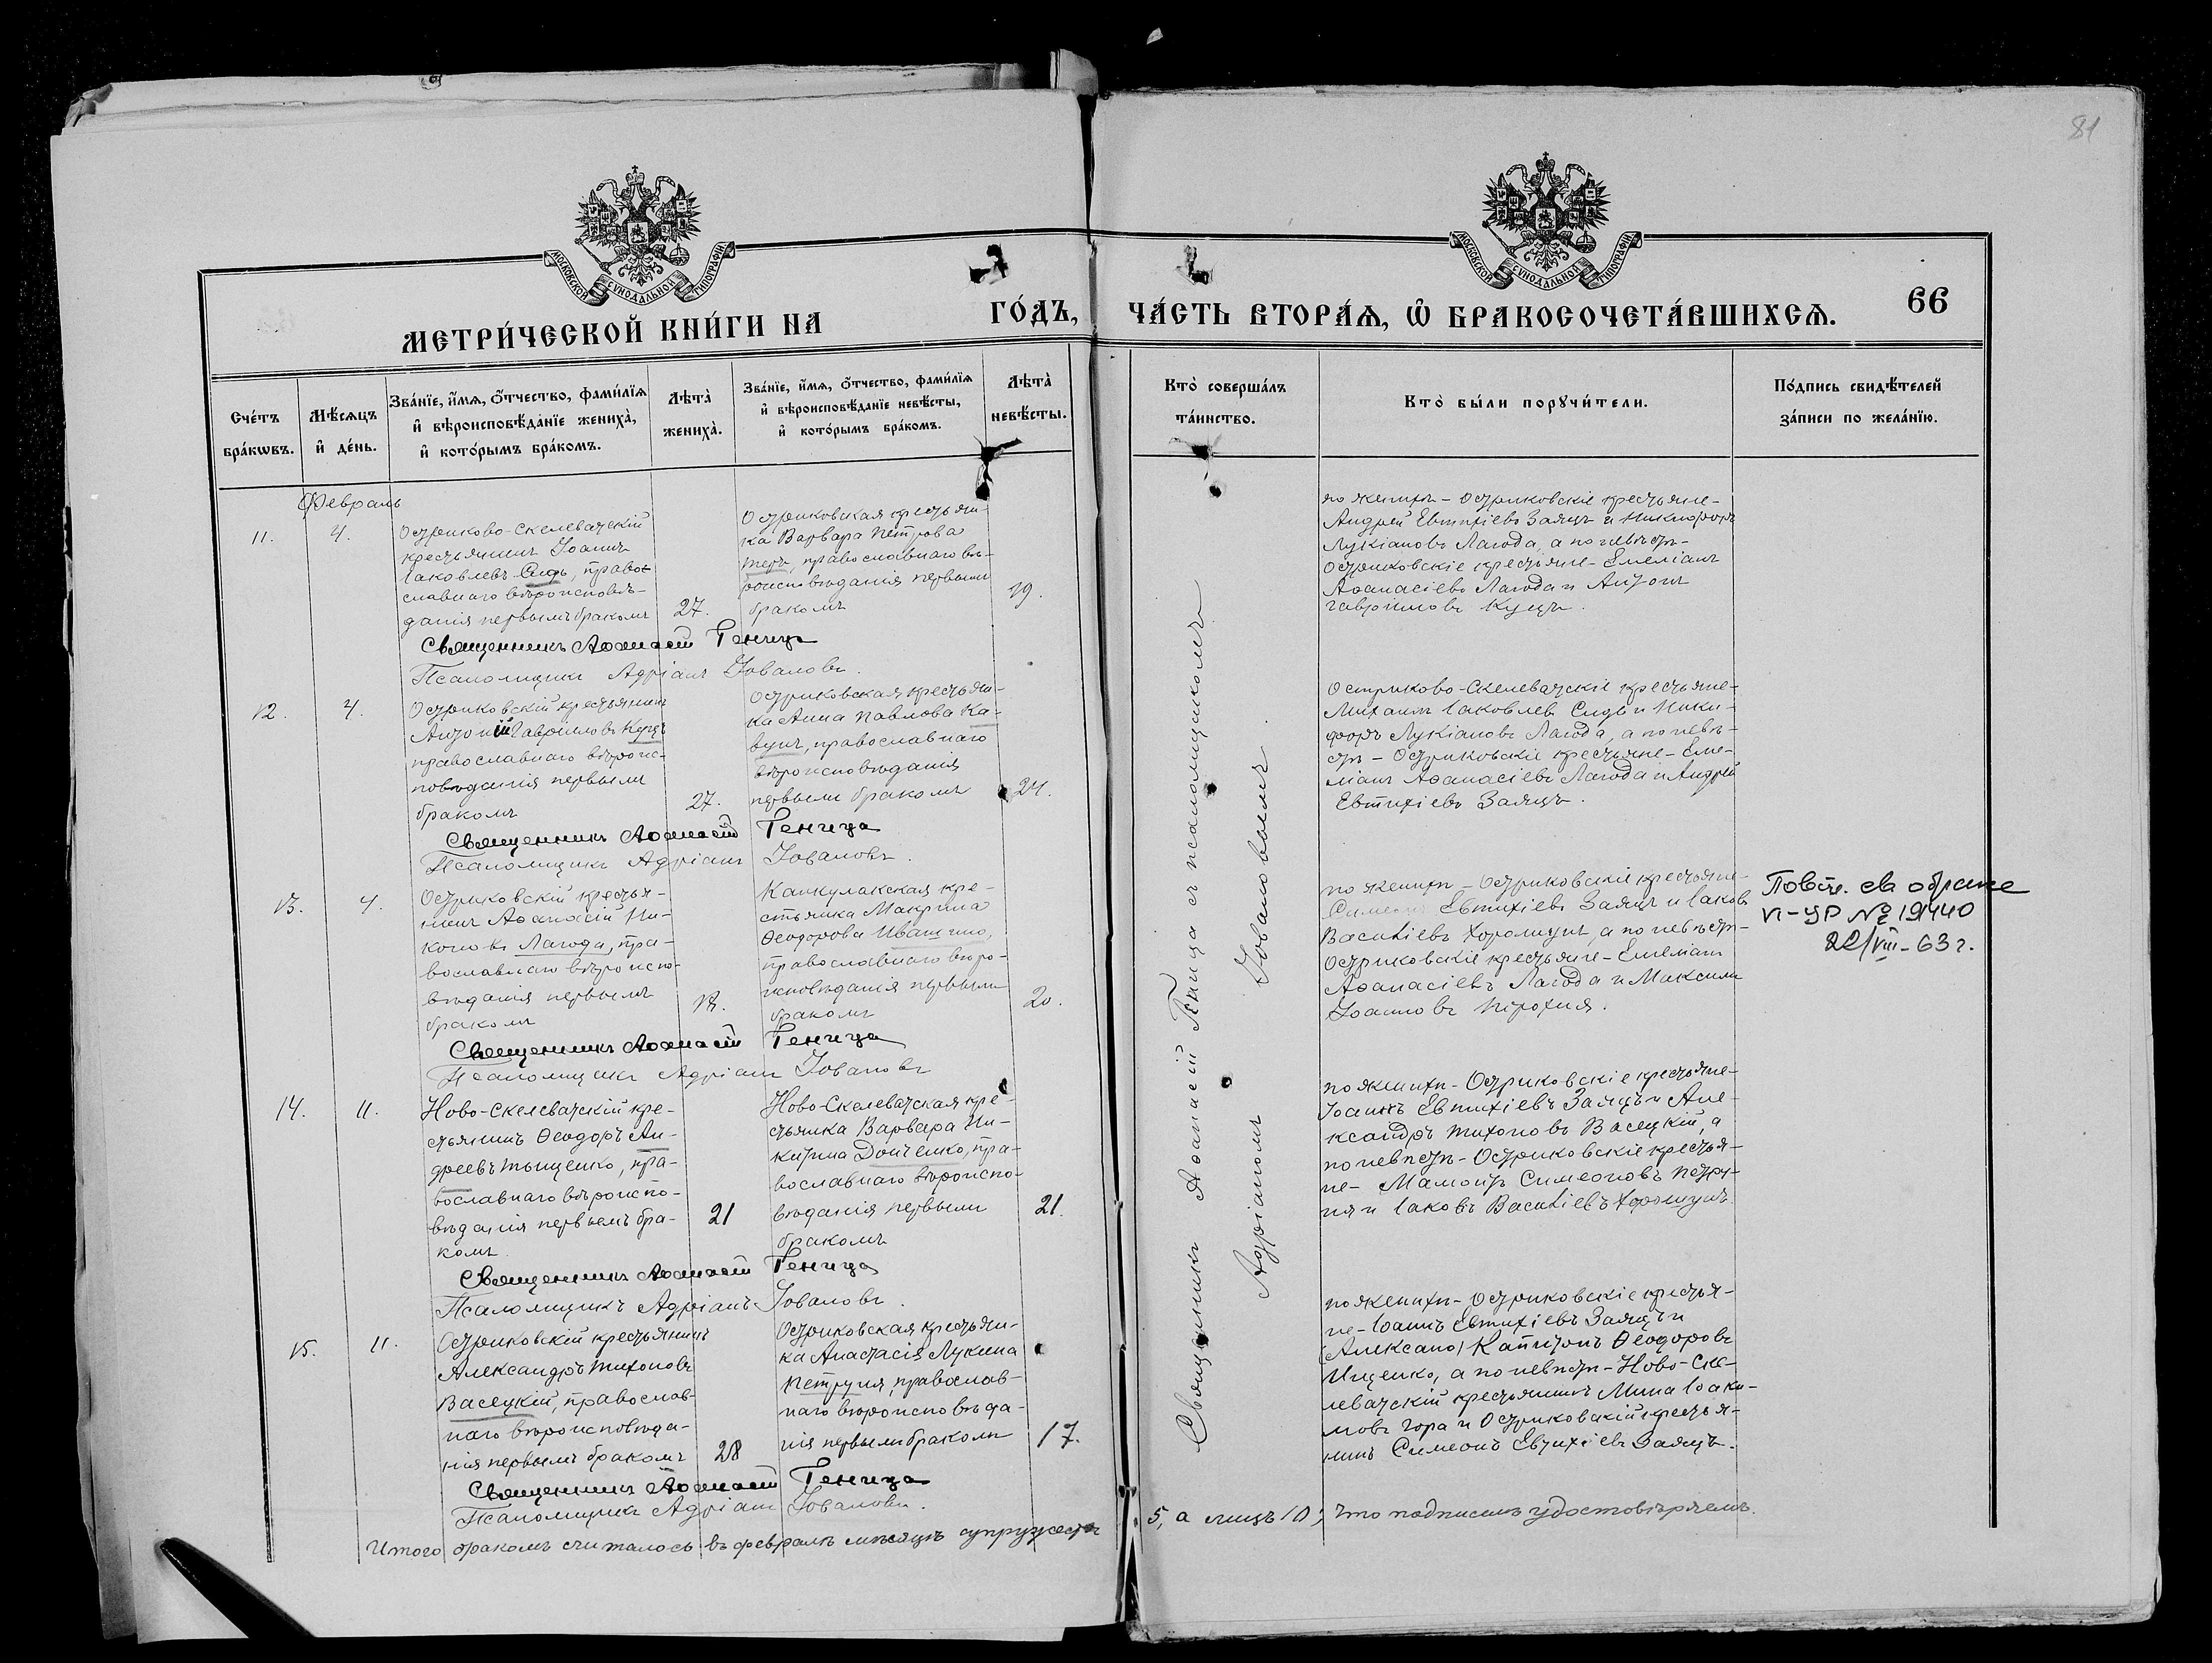 81
МОСКОВСКОЙ СѴНОДАЛЬНОЙ ТИПОГРАФІИ
МОСКОВСКОЙ СѴНОДАЛЬНОЙ ТИПОГРАФІИ
МЕТРИ́ЧЕСКОЙ КНИ́ГИ НА ГО́ДЪ, ЧА́СТЬ ВТОРА́Ѧ, Ѡ҆ БРАКОСОЧЕТА́ВШИХСѦ. 66
Сче́тъ бра́кѡвъ.
Мѣ́сѧцъ и҆ де́нь.
Зва́нїе, и҆́мѧ, ѻ҆́тчество, фами́лїѧ
и҆ вѣроисповѣ́данїе жениха̀,
и҆ кото́рымъ бра́комъ.
Лѣта̀ жениха̀.
Зва́нїе, и҆́мѧ, ѻ҆́тчество, фами́лїѧ
и҆ вѣроисповѣ́данїе невѣ́сты,
и҆ кото́рымъ бра́комъ.
Лѣта̀ невѣ́сты.
Кто̀ соверша́лъ та́инство.
Кто̀ бы́ли порꙋчи́тели.
По́дпись свидѣ́телей
за́писи по жела́нїю.
Февраль
11. 4.
Остриково-Скелеватскій
крестьянинъ Іоаннъ
Іаковлевъ Сидь, право-
славнаго вѣроисповѣ-
данія первымъ бракомъ
27.
Остриковская крестьян-
ка Варвара Петрова
, православнаго вѣ-
роисповѣданія первымъ
бракомъ
19.
по женихѣ - Остриковскіе крестьяне-
Андрей Евтихіевъ Заяцъ и Никифоръ
Лукіановъ Лагода, а по невѣстѣ-
Остриковскіе крестьяне - Емеліанъ
Аѳанасіевъ Лагода и Антонъ
Гавріиловъ Куцъ.
Священникъ Аѳанасій Геница
Псаломщикъ Адріанъ Іовановъ.
12. 4.
Остриковскій крестьянинъ
Антоній Гавріиловъ Куцъ
православнаго вѣроис-
повѣданія первымъ
бракомъ
27.
Остриковская крестьян-
ка Анна Павлова Ка-
вунъ, православнаго
вѣроисповѣданія
первымъ бракомъ
24.
Остриково-Скелеватскіе крестьяне-
Михаилъ Іаковлевъ Сидь и Ники-
форъ Лукіановъ Лагода, а по невѣ-
стѣ - Остриковскіе крестьяне - Еме-
ліанъ Аѳанасіевъ Лагода и Андрей
Евтихіевъ Заяцъ.
Священникъ Аѳанасій Геница
Псаломщикъ Адріанъ Іовановъ.
13. 4.
Остриковскій крестья-
нинъ Аѳанасій Ни-
коновъ Лагода, пра-
вославнаго вѣроиспо-
вѣданія первымъ
бракомъ
18.
Канкулакская кре-
стьянка Макрина
Ѳеодорова Иващенко,
православнаго вѣро-
исповѣданія первымъ
бракомъ
20.
по женихѣ - Остриковскіе крестьяне-
Симеонъ Евтихіевъ Заяцъ и Іаковъ
Василіевъ Хоромцунъ, а по невѣстѣ-
Остриковскіе крестьяне - Емеліанъ
Аѳанасіевъ Лагода и Максимъ
Іоанновъ .
Повт. св о браке
№ 19440
22/VIII-63 г.
Священникъ Аѳанасій Геница
Псаломщикъ Адріанъ Іовановъ
14. 11.
Ново-Скелеватскій кре-
стьянинъ Ѳеодоръ Ан-
дреевъ Тыщенко, пра-
вославнаго вѣроиспо-
вѣданія первымъ бра-
комъ.
21
Ново-Скелеватская кре-
стьянка Варвара Ни-
китина Донченко, пра-
вославнаго вѣроиспо-
вѣданія первымъ
бракомъ
21.
по женихѣ - Остриковскіе крестьяне-
Іоаннъ Евтихіевъ Заяцъ и Але-
ксандръ Тихоновъ Васецкій, а
по невѣстѣ - Остриковскіе крестья-
не - Симеоновъ Петру-
ня и Іаковъ Василіевъ Хоромцунъ.
Священникъ Аѳанасій Геница
Псаломщикъ Адріанъ Іовановъ.
15. 11.
Остриковскій крестьянинъ
Александръ Тихоновъ
Васецкій, православ-
наго вѣроисповѣда-
нія первымъ бракомъ
28
Остриковская крестьян-
ка Анастасія Лукина
Петруня, православ-
наго вѣроисповѣда-
нія первымъ бракомъ
17.
по женихѣ - Остриковскіе крестья-
не - Іоаннъ Евтихіевъ Заяцъ и
(Александ) Капитонъ Ѳеодоровъ
Ищенко, а по невѣстѣ - Ново-Ске-
леватскій крестьянинъ Мина Іаки-
мовъ Гора и Остриковскій крестья-
нинъ Симеонъ Евтихіевъ Заяцъ.
Священникъ Аѳанасій Геница
Псаломщикъ Адріанъ Іовановъ.
Священникъ Аѳанасій Геница съ псаломщикомъ
Адріаномъ Іовановымъ.
Итого бракомъ считалось въ февралѣ мѣсяцѣ супружествъ 5, а лицъ 10; что подписомъ удостовѣряемъ.